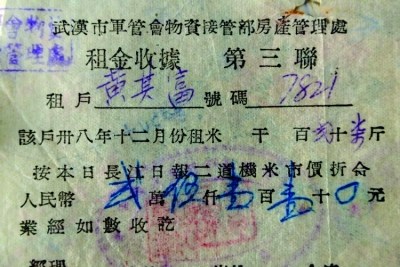 武漢市軍管會物資接管部房產管理處
租金收據 第三聯
管理處
租戶 黄其富 號碼 7821
該戶卅八年十二月份租米 千 百 弍 十 斤
按本日長江日報二道機米市價折合
人民幣 弍 萬 伍 仟 壹 百 壹 十 0 元
業經如數收訖